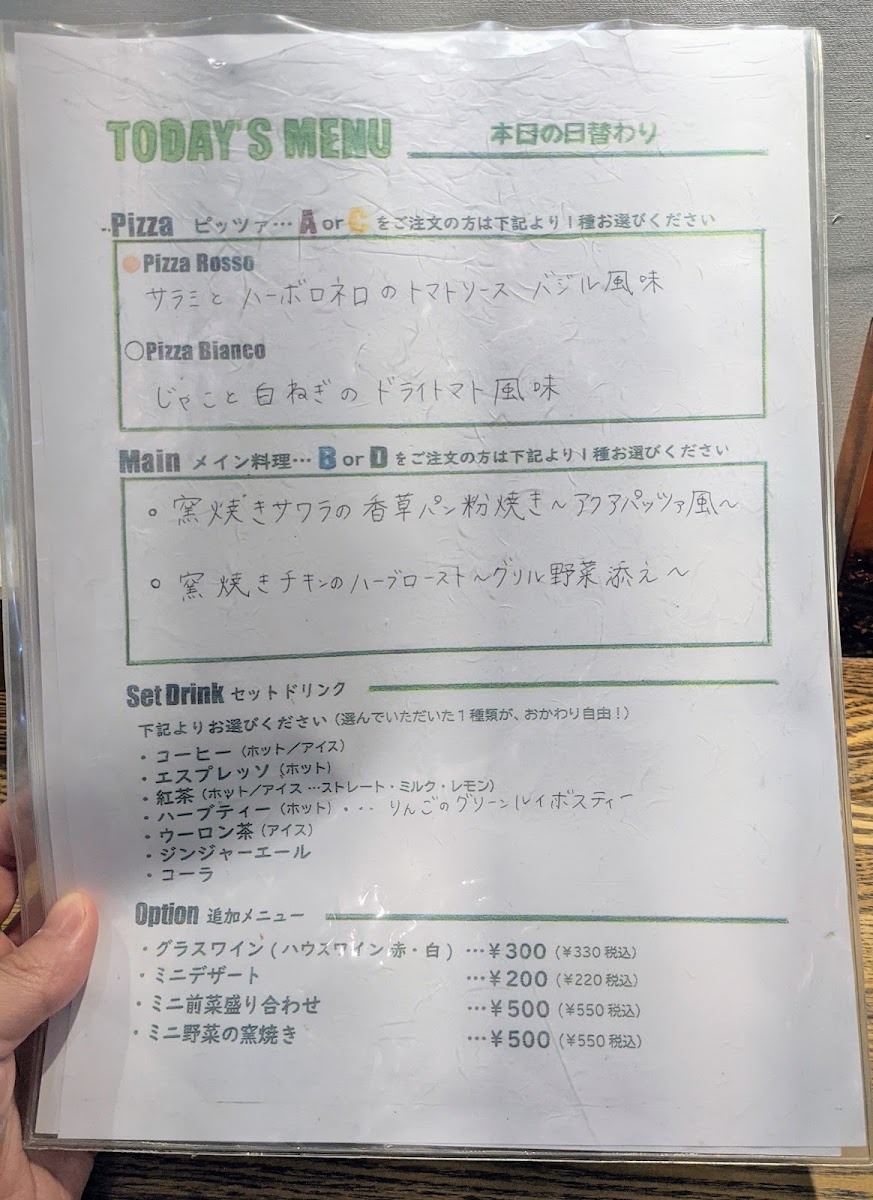 TODAY'S MENU 本日の日替わり
Pizza ピッツァ… A or C をご注文の方は下記より1種お選びください
Pizza Rosso
サラミとハーボロネロのトマトソース バジル風味
○Pizza Bianco
じゃこと白ねぎのドライトマト風味
Main メイン料理… B or D をご注文の方は下記より1種お選びください
。窯焼きサワラの香草パン粉焼き~アクアパッツァ風~
。窯焼きチキンのハーブロースト~グリル野菜添え~
Set Drink セットドリンク
下記よりお選びください(選んでいただいた1種類が、おかわり自由!)
・コーヒー(ホット/アイス)
・エスプレッソ(ホット)
・紅茶(ホット/アイス…ストレート・ミルク・レモン)
・ハーブティー(ホット)・・・りんごのグリーンルイボスティー
・ウーロン茶(アイス)
・ジンジャーエール
・コーラ
Option 追加メニュー
・グラスワイン(ハウスワイン 赤・白) …¥300(¥330税込)
・ミニデザート …¥200(¥220税込)
・ミニ前菜盛り合わせ …¥500(¥550税込)
・ミニ野菜の窯焼き …¥500(¥550税込)